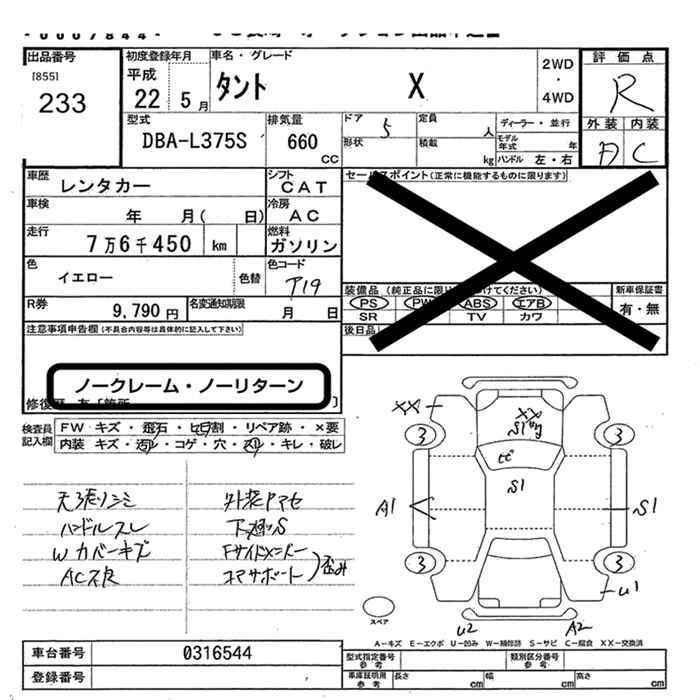 出品番号
[855]
233
初度登録年月
平成
22 5 月
車名・グレード
タント X
2WD
・
4WD
評価点
R
外装 内装
A C
型式
DBA-L375S
排気量
660
CC
ドア 5
形状
定員 人
積載 kg
ディーラー・並行
モデル年式 年
ハンドル 左・右
車歴
レンタカー
シフト
CAT
セールスポイント(正常に機能するものに限ります)
車検
年 月( 日)
冷房
AC
走行
7万6千450 km
燃料
ガソリン
色
イエロー
色替
色コード
ア19
装備品
PS PW ABS エアB
SR TV カワ
新車保証書
有・無
後日品
R券
9,790 円
名変通知期限
月 日
注意事項申告欄(不具合内容等は具体的に記入して下さい)
ノークレーム・ノーリターン
検査員
記入欄
FW キズ・飛石・ヒビ割・リペア跡・×要
内装 キズ・汚れ・コゲ・穴・スレ・キレ・破レ
天張リシミ
ハンドルスレ
Wカバーキズ
AC不良
外装ヤマセ
下廻りS
Fサイドメンバー
コアサポート
歪み
XX
XX
S1
3
3
S1
A1
S1
3
3
U1
U2
A2
スペア
A-キズ E-エクボ U-凹み W-補修跡 S-サビ C-腐食 XX-交換済
車台番号
0316544
登録番号
型式指定番号
参考
類別区分番号
参考
車庫証明用
参考
長さ cm
幅 cm
高さ cm